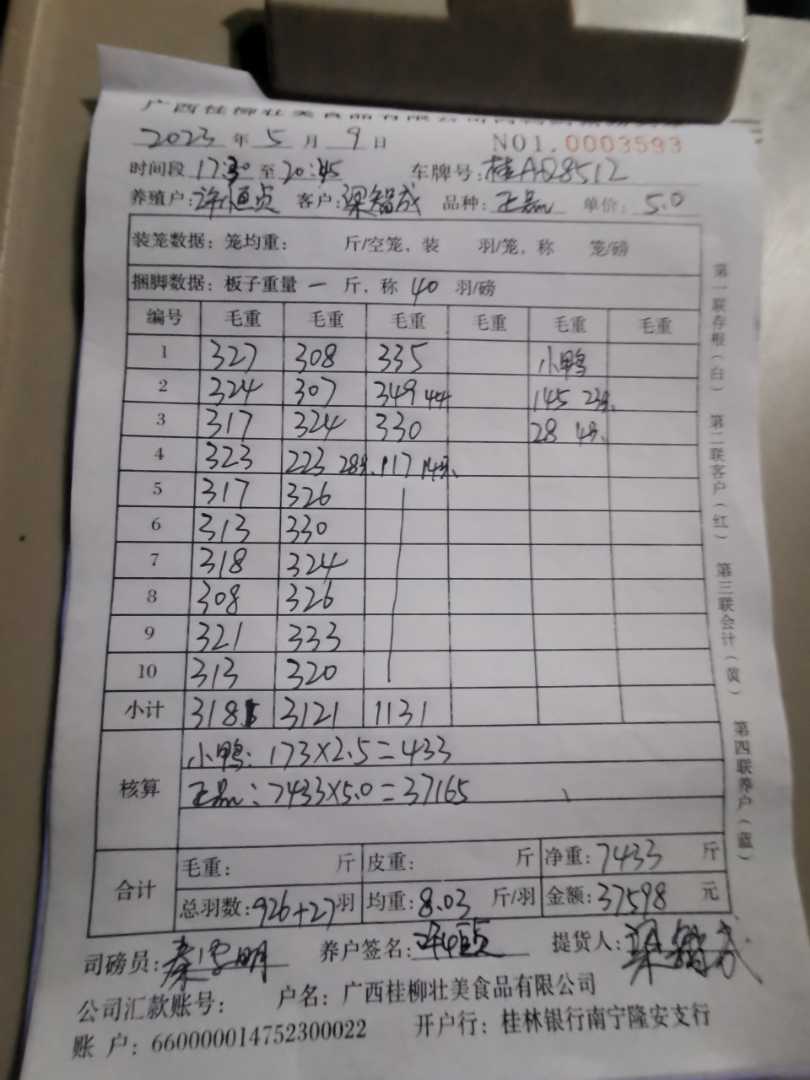 广西桂柳壮美食品有限公司
2023 年 5 月 9 日 NO1.0003593
时间段 17:30 至 20:45 车牌号:桂AQ8512
养殖户:许恒贞 客户:梁智成 品种: 单价: 5.0
装笼数据:笼均重: 斤/空笼,装 羽/笼,称 笼/磅
捆脚数据:板子重量 一 斤,称 40 羽/磅
编号 毛重 毛重 毛重 毛重 毛重 毛重
1 327 308 335 小鸭
2 324 307 349 44 145 23只
3 317 324 330 28 4只
4 323 223 28只 117 14只
5 317 326
6 313 330
7 318 324
8 308 326
9 321 333
10 313 320
小计 3181 3121 1131
核算 小鸭:173×2.5=433
:7433×5.0=37165
合计 毛重: 斤 皮重: 斤 净重:7433 斤
总羽数:926+27羽 均重:8.03 斤/羽 金额:37598 元
司磅员: 养户签名: 提货人:梁智成
公司汇款账号: 户名:广西桂柳壮美食品有限公司
账 户:660000014752300022 开户行:桂林银行南宁隆安支行
第一联存根(白) 第二联客户(红) 第三联会计(黄) 第四联养户(蓝)